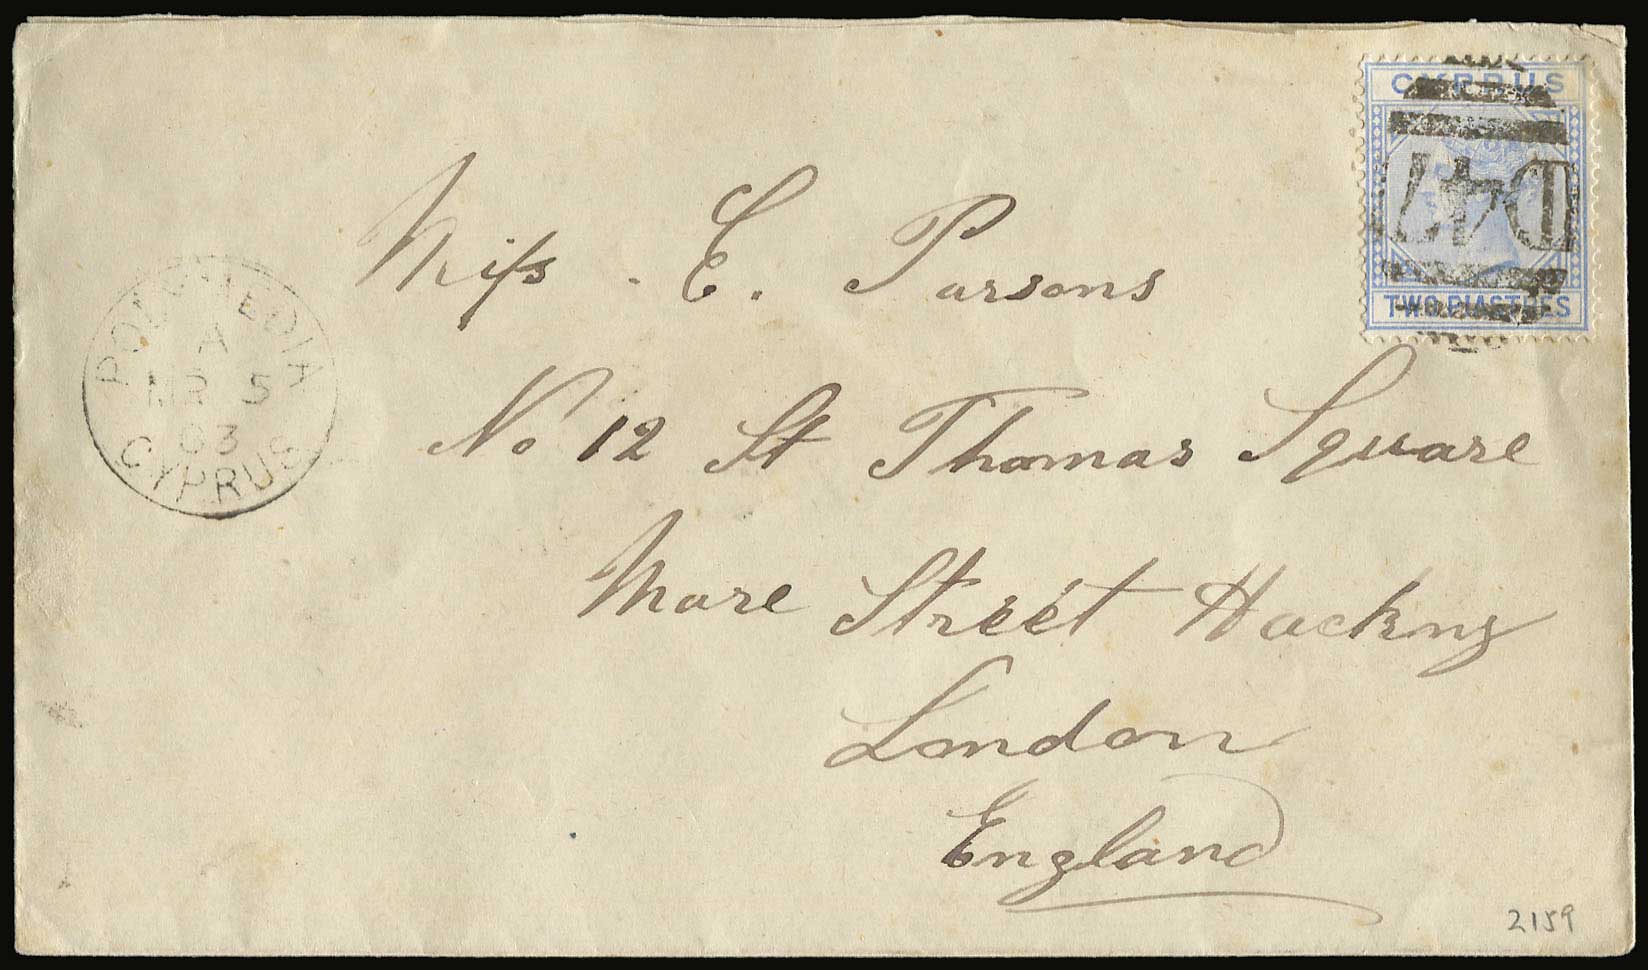 CYPRUS
D47
TWO PIASTRES
Miss . E. Parsons
POLYMEDIA
A
MR 5
03
CYPRUS
No 12 St Thomas Square
Mare Street Hackny
London
England
2159